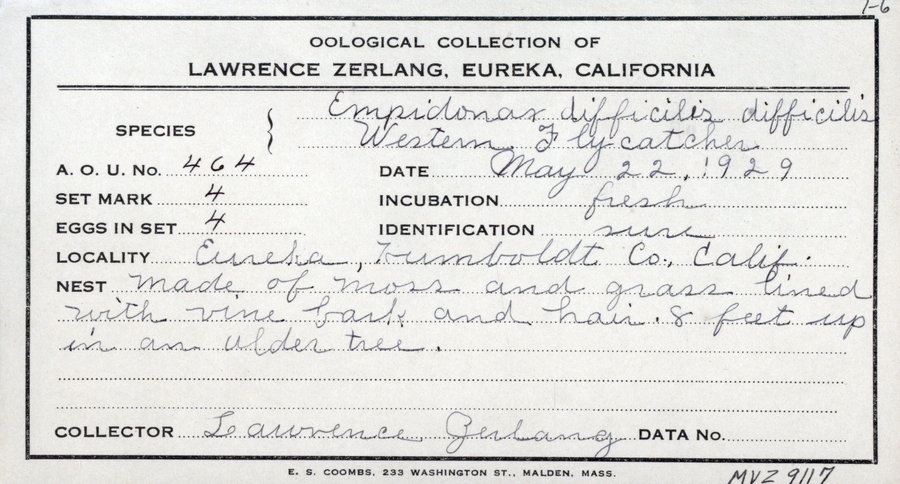 1-6
OOLOGICAL COLLECTION OF
LAWRENCE ZERLANG, EUREKA, CALIFORNIA
SPECIES } Empidonax difficilis difficilis
Western Flycatcher
A. O. U. No. 464 DATE May 22, 1929
SET MARK 4 INCUBATION fresh
EGGS IN SET 4 IDENTIFICATION sure
LOCALITY Eureka, Humboldt Co., Calif.
NEST made of moss and grass lined
with vine bark and hair. 8 feet up
in an alder tree.
COLLECTOR Lawrence Zerlang DATA No.
E. S. COOMBS, 233 WASHINGTON ST., MALDEN, MASS.
MVZ 9117